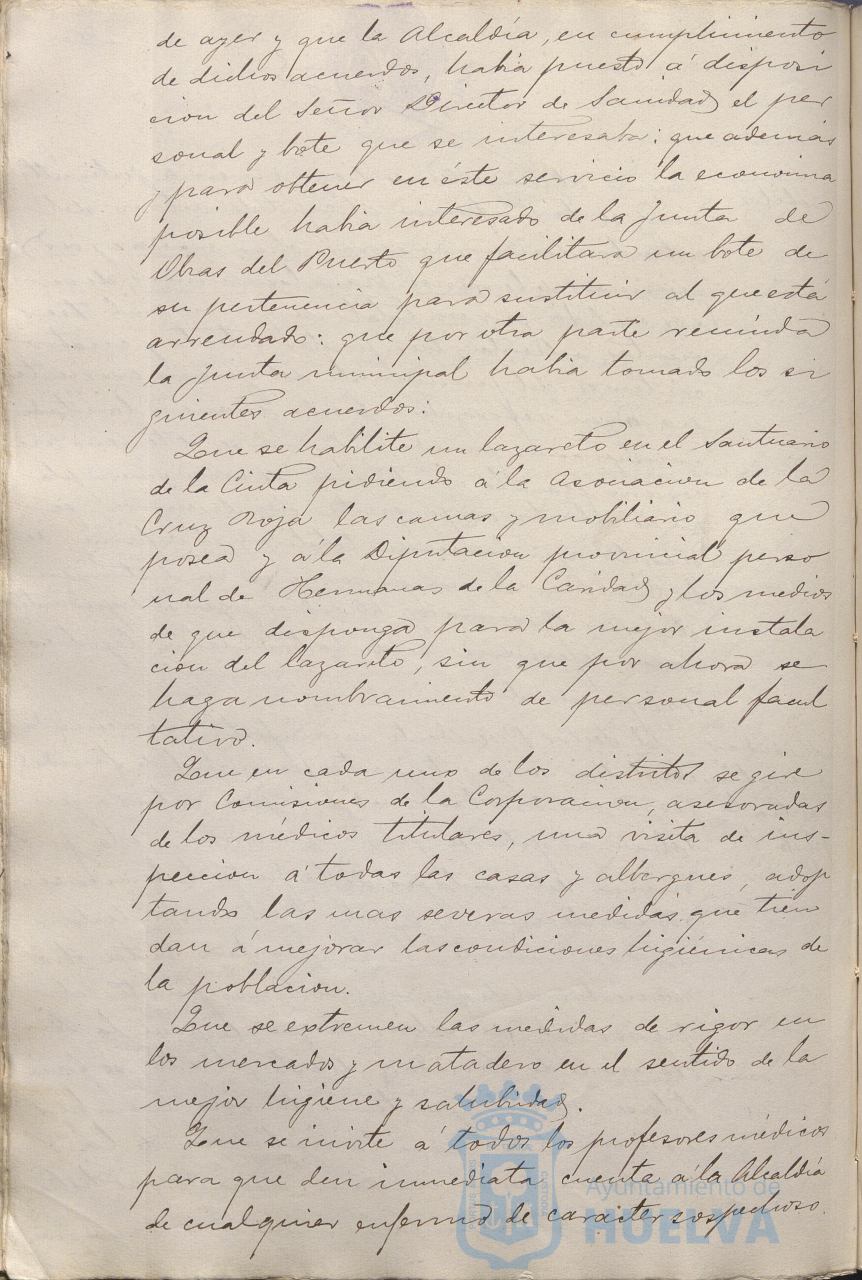 de ayer y que la Alcaldía, en cumplimiento
de dichos acuerdos, había puesto á disposi
cion del Señor Director de Sanidad el per
sonal y bote que se interesaba; que además
y para obtener en éste servicio la economia
posible habia interesado de la Junta de
Obras del Puerto que facilitara un bote de
su pertenencia para sustituir al que está
arrendado: que por otra parte reunida
la Junta municipal habia tomado los si
guientes acuerdos:
Que se habilite un lazareto en el Santuario
de la Cinta pidiendo á la Asociacion de la
Cruz Roja las camas y mobiliario que
posea y á la Diputacion provincial perso
nal de Hermanas de la Caridad y los medios
de que disponga para la mejor instala
cion del lazareto, sin que por ahora se
haga nombramiento de personal facul
tativo.
Que en cada uno de los distritos se gire
por Comisiones de la Corporacion, asesoradas
de los médicos titulares, una visita de ins-
peccion á todas las casas y albergues, adop
tando las mas severas medidas que tien
dan á mejorar las condiciones higiénicas de
la poblacion.
Que se extremen las medidas de rigor en
los mercados y matadero en el sentido de la
mejor higiene y salubridad.
Que se invite á todos los profesores médicos
para que den inmediata cuenta á la Alcaldía
de cualquier enfermo de caracter sospechoso.
Ayuntamiento de
HUELVA